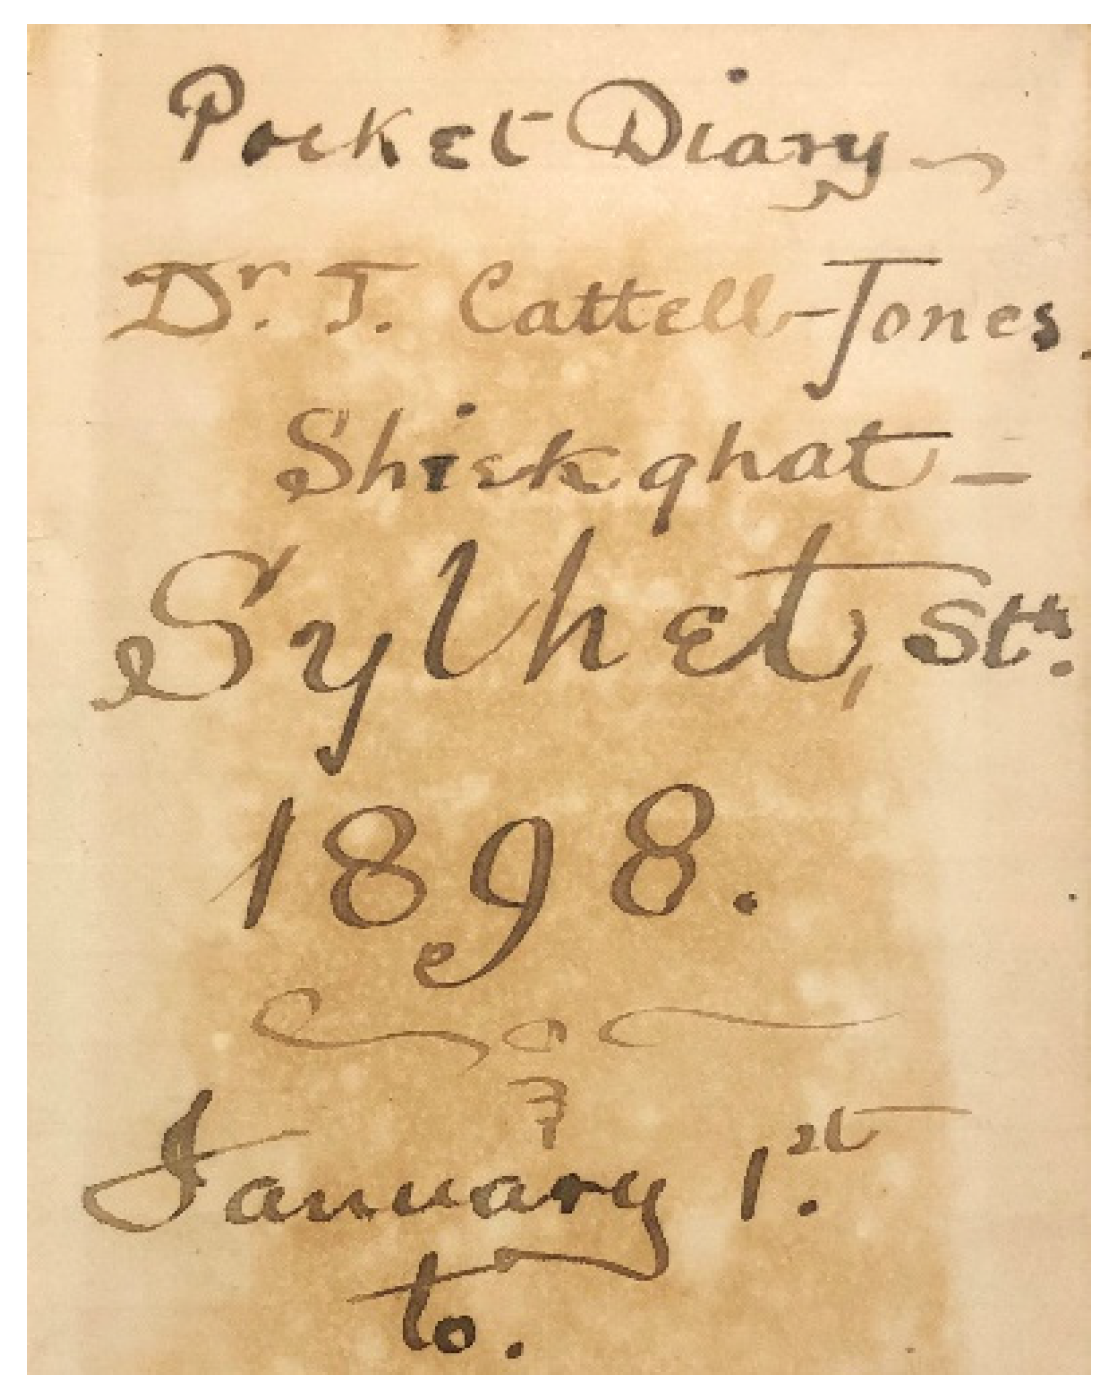 Pocket Diary
Dr. T. Cattell-Jones.
Shiekghat –
Sylhet, Sth.
1898.
January 1.st
to.